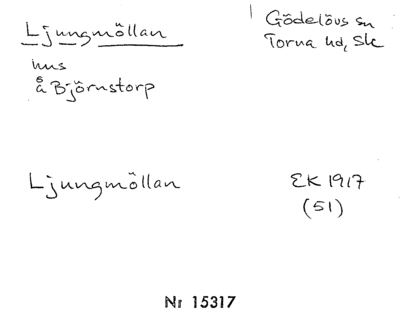 Ljungmöllan
Gödelövs sn
Torna hd, Sk
hus
å Björnstorp
Ljungmöllan
EK 1917
(51)
Nr 15317